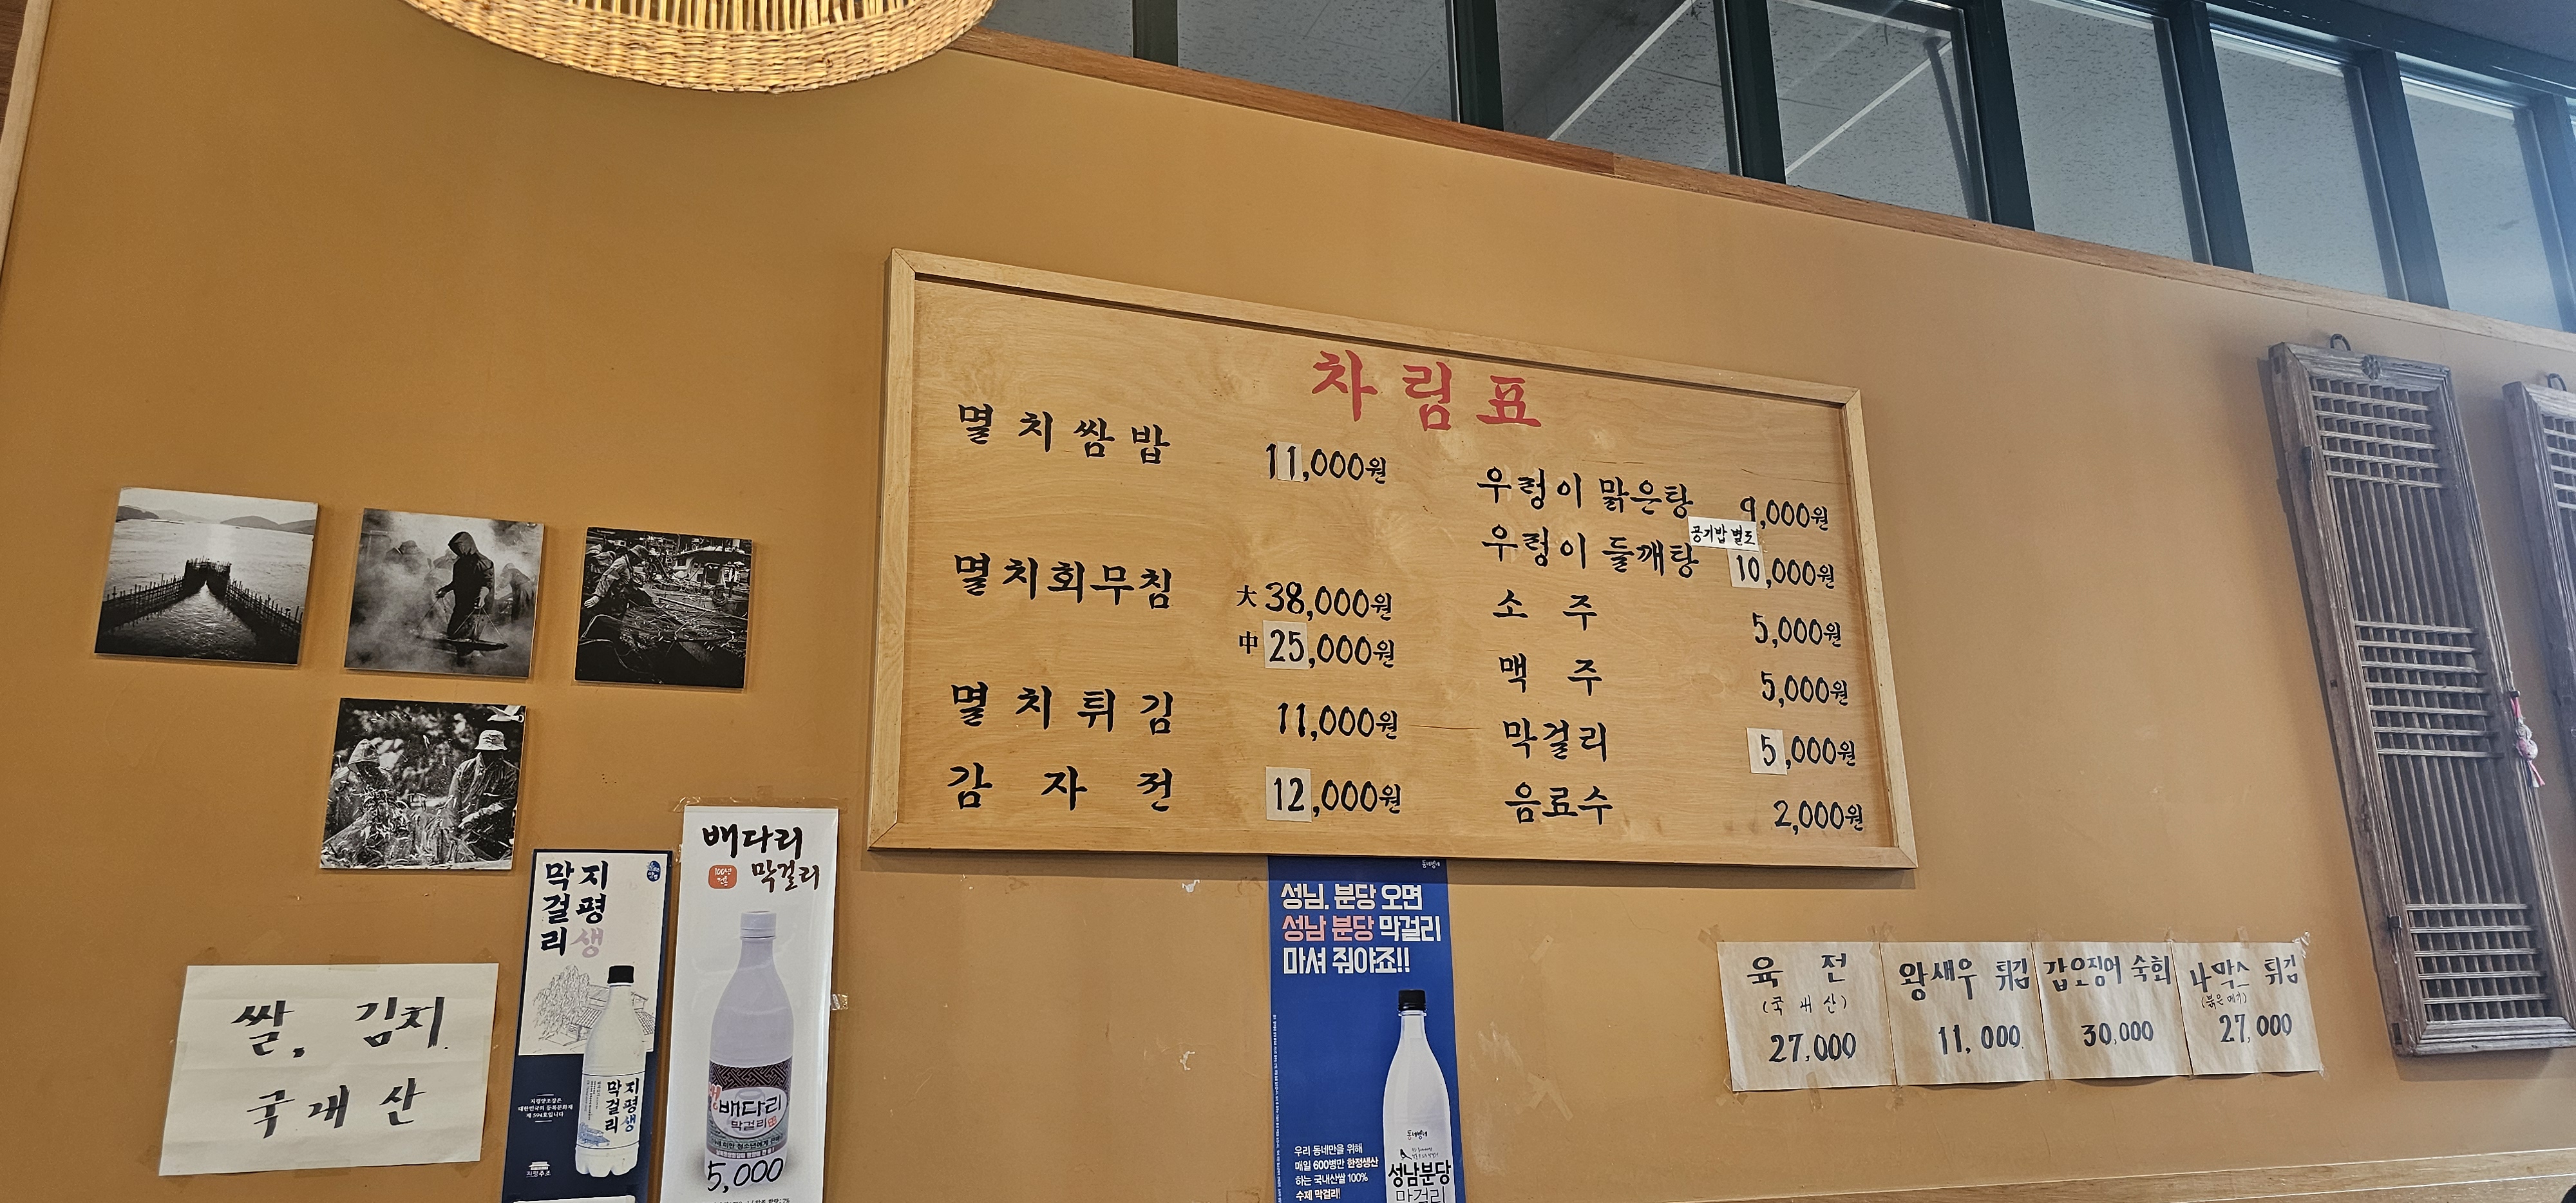 차림표
멸치쌈밥 11,000원
멸치회무침 大 38,000원
中 25,000원
멸치튀김 11,000원
감자전 12,000원
우렁이 맑은탕 9,000원
공기밥 별도
우렁이 들깨탕 10,000원
소주 5,000원
맥주 5,000원
막걸리 5,000원
음료수 2,000원
쌀, 김치
국내산
지평생
막걸리
지평생
막걸리
지평양조장은
대한민국의 등록문화재
제 594호입니다
지평주조
배다리
막걸리
배다리
막걸리
5,000
동네방네
성남, 분당 오면
성남 분당 막걸리
마셔 줘야죠!!
우리 동네만을 위해
매일 600병만 한정생산
하는 국내산쌀 100%
수제 막걸리!
동네방네
성남분당
막걸리
육전
(국내산)
27,000
왕새우 튀김
11,000
갑오징어 숙회
30,000
나막스 튀김
(붉은메기)
27,000